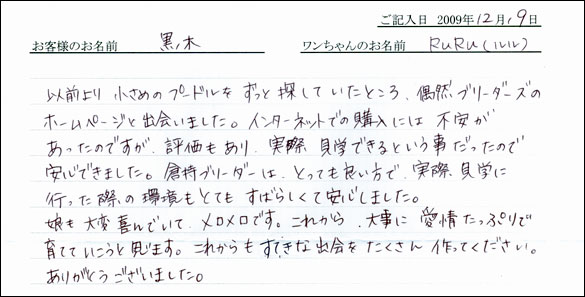 ご記入日 2009年12月19日
お客様のお名前 黒木 ワンちゃんのお名前 RuRu(ルル)
以前より 小さめのプードルを ずっと探していたところ、偶然ブリーダーズの
ホームページと出会いました。インターネットでの購入には 不安が
あったのですが、評価もあり、実際、見学できるという事だったので
安心できました。倉持ブリーダーは、とっても良い方で、実際、見学に
行った際の環境もとても すばらしくて安心しました。
娘も大変喜んでいて、メロメロです。これから、大事に愛情たっぷりで
育てていこうと思います。これからも すてきな出会を たくさん 作ってください。
ありがとうございました。